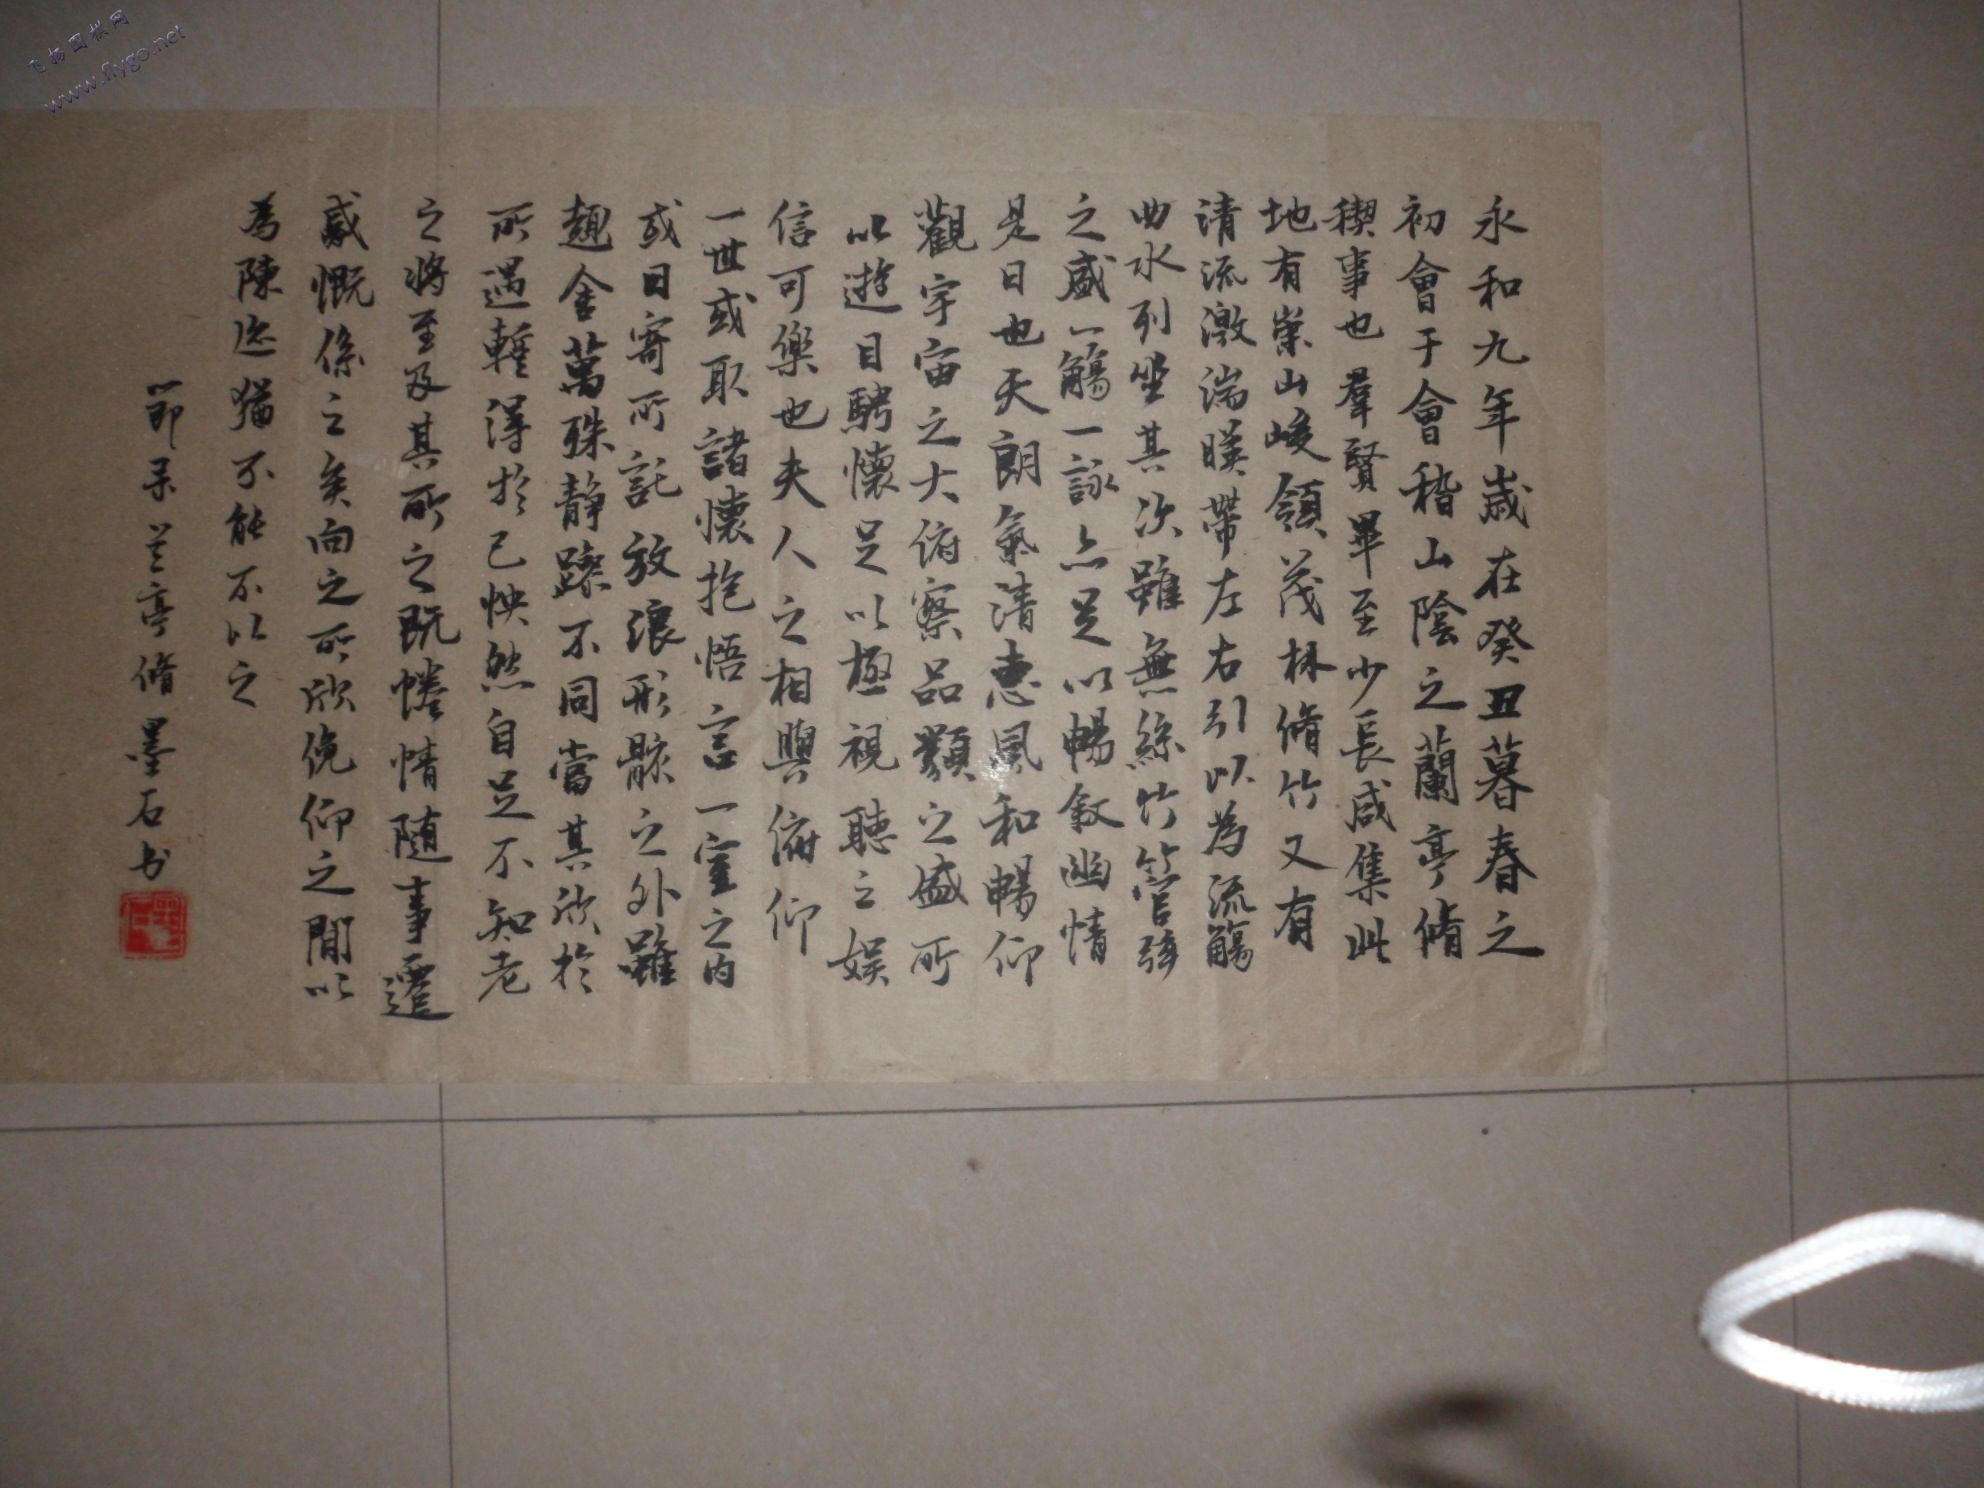 永和九年歲在癸丑暮春之
初會于會稽山陰之蘭亭脩
稧事也羣賢畢至少長咸集此
地有崇山峻領茂林脩竹又有
清流激湍暎帶左右引以為流觴
曲水列坐其次雖無絲竹管弦
之盛一觴一詠亦足以暢敘幽情
是日也天朗氣清惠風和暢仰
觀宇宙之大俯察品類之盛所
以遊目騁懷足以極視聽之娛
信可樂也夫人之相與俯仰
一世或取諸懷抱悟言一室之內
或因寄所託放浪形骸之外雖
趣舍萬殊靜躁不同當其欣於
所遇暫得於己怏然自足不知老
之將至及其所之既惓情隨事遷
感慨係之矣向之所欣俛仰之閒以
為陳迹猶不能不以之
節录兰亭脩墨石书
飞扬围棋网
www.flygo.net